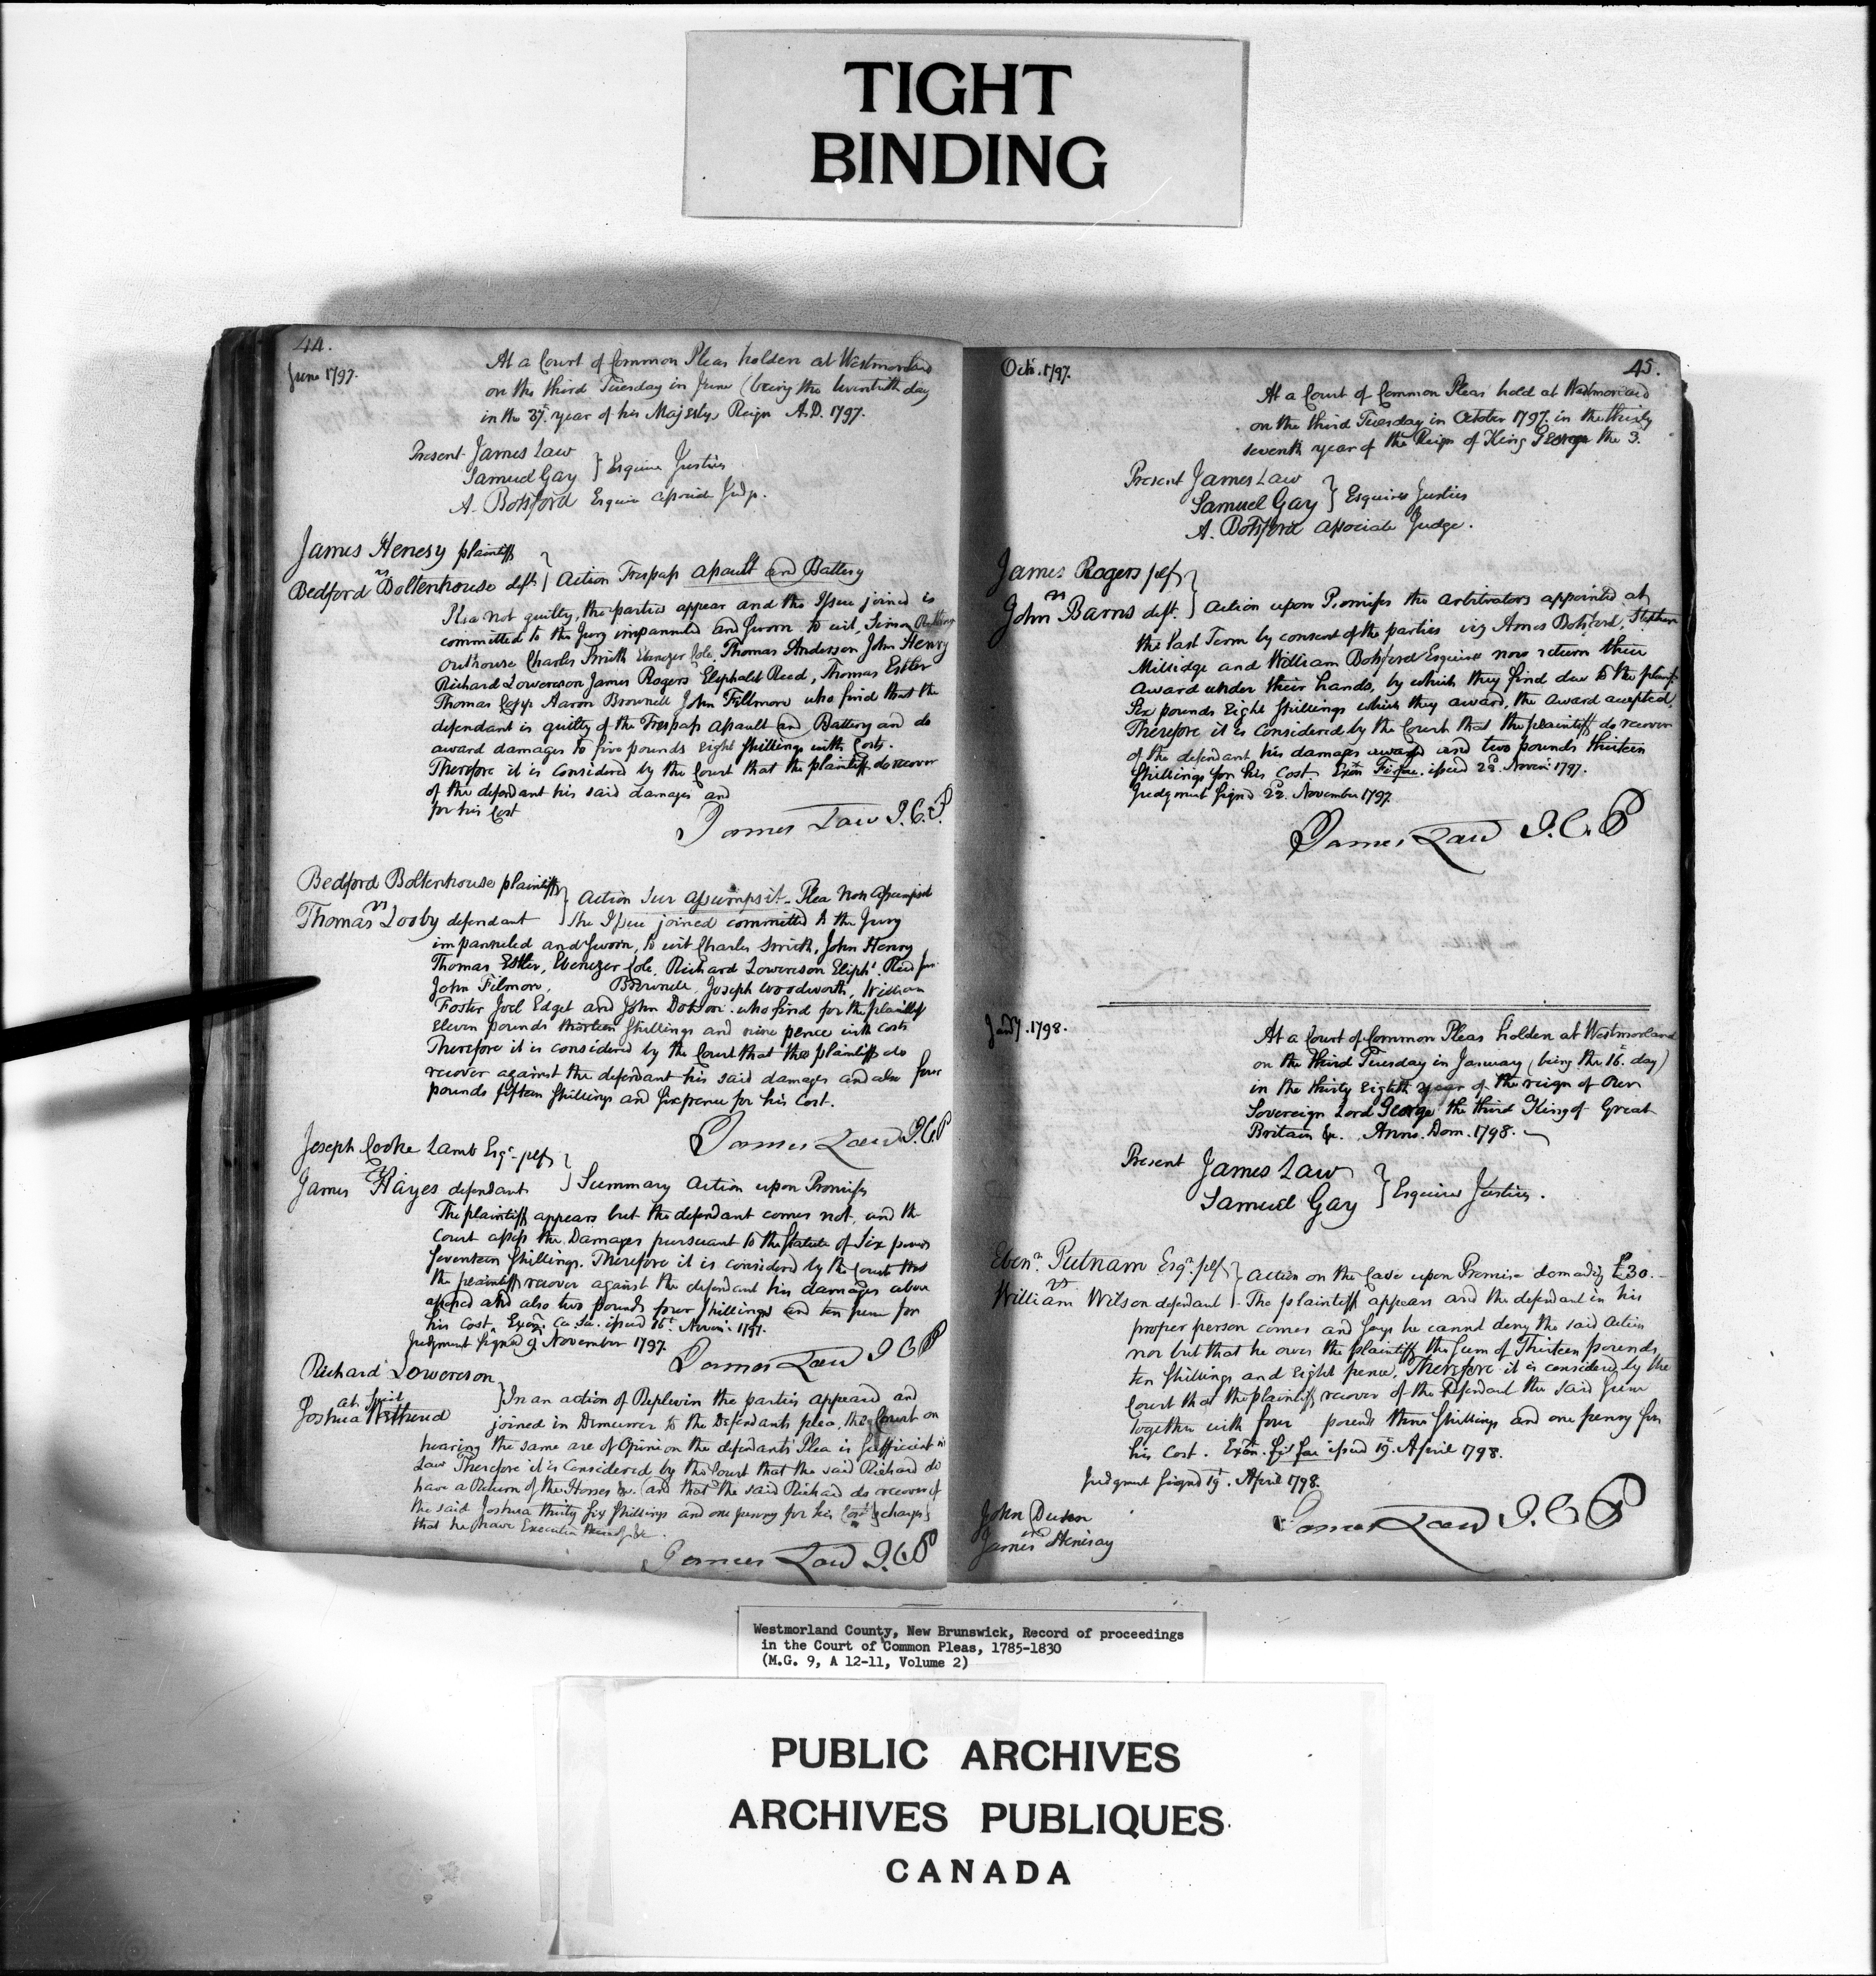 TIGHT
BINDING
44.
June 1797.
At a Court of Common Pleas holden at Westmorland
on the third Tuesday in June (being the twentieth day
in the 37. year of his Majestys Reign A.D. 1797.
Present James Law
Samuel Gay } Esquire Justices
A. Botsford Esquire Associate Judge.
James Henesy plaintiff
vs
Bedford Boltenhouse deft } Action Trespass Assault and Battery
Plea not guilty, the parties appear and the Issue joined is
committed to the Jury impannelled and sworn to wit, Simon
Outhouse Charles Smith Ebenezer Cole, Thomas Anderson John Henry
Richard Lowereson James Rogers Eliphalet Reed, Thomas Estler
Thomas Aaron Brownell John Fillmore who find that the
defendant is guilty of the Trespass Assault and Battery and do
award damages to five pounds Eight Shillings with Costs.
Therefore it is considered by the Court that the plaintiff do recover
of the defendant his said damages and
for his Cost
James Law J.C.P.
Bedford Boltenhouse plaintiff
vs
Thomas Losby defendant } Action Sur Assumpsit - Plea Non Assumpsit
the Issue joined committed to the Jury
impanneled and Sworn, to wit Charles Smith, John Henry
Thomas Estler, Ebenezer Cole, Richard Lowereson Eliph't. Reed Jun
John Filmore, Brownell, Joseph Woodworth, William
Foster Joel Edget and John Dobson who find for the plaintiff
Eleven pounds thirteen Shillings and nine pence with Costs
Therefore it is considered by the Court that the plaintiff do
recover against the defendant his said damages and also four
pounds fifteen Shillings and Six pence for his Cost.
James Law J.C.P
Joseph Cooke Lamb Esqr. plf
vs
James Hayes defendant } Summary Action upon Promises
The plaintiff appears but the defendant comes not, and the
Court assess the Damages pursuant to the Statute of Six pounds
Seventeen Shillings. Therefore it is considered by the Court that
the plaintiff recover against the defendant his damages above
assessed and also two pounds four Shillings and ten pence for
his Cost. Exon. Ca. Sa. issued 16t. Novem. 1797.
Judgment Signed 9. November 1797.
James Law J C P
Richard Lowereson
at Suit
Joshua Wethered } In an action of Replevin the parties appeared and
joined in Demurrer to the Defendants plea, the Court on
hearing the same are of Opinion the defendants' Plea is Sufficient in
Law Therefore it is Considered by the Court that the said Richard do
have a Return of the Horses &c. and that the said Richard do recover of
the said Joshua thirty Six Shillings and one penny for his Cost & charges
that he have Execution thereof &c.
James Law J.C.P
Octr. 1797.
45.
At a Court of Common Pleas held at Westmorland
on the third Tuesday in October 1797 in the thirty
seventh year of the Reign of King George the 3.
Present James Law
Samuel Gay } Esquires Justices
A. Botsford Associate Judge.
James Rogers plf
vs
John Barns deft. } Action upon Promises the arbitrators appointed at
the last Term by consent of the parties viz Amos Botsford, Stephen
Millidge and William Botsford Esquires now return their
Award under their hands, by which they find due to the plantf.
Six pounds Eight Shillings which they award, the Award accepted,
Therefore it is Considered by the Court that the plaintiff do recover
of the defendant his damages award and two pounds thirteen
Shillings for his Cost Exon Fi fac. issued 22d. Novem: 1797.
Judgment Signd 22. November 1797.
James Law J.C.P
Jany. 1798.
At a Court of Common Pleas holden at Westmorland
on the third Tuesday in January (being the 16. day)
in the thirty Eighth year of the reign of Our
Sovereign Lord George the third King of Great
Britain &c. Anno. Dom. 1798.
Present James Law
Samuel Gay } Esquires Justices.
Ebenr. Putnam Esqr. plf
vs
William Wilson defendant } Action on the Case upon Promise demanding £30. -
The plaintiff appears and the defendant in his
proper person comes and says he cannot deny the said Action
nor but that he owes the plaintiff the Sum of Thirteen pounds
ten Shillings and Eight pence. Therefore it is considered by the
Court that the plaintiff recover of the Defendant the said Sum
together with four pounds three Shillings and one penny for
his Cost. Exon. fi fac issued 19. April 1798.
Judgment Signed 19. April 1798.
James Law J.C.P
John
vs
James Henisay
Westmorland County, New Brunswick, Record of proceedings
in the Court of Common Pleas, 1785-1830
(M.G. 9, A 12-11, Volume 2)
PUBLIC ARCHIVES
ARCHIVES PUBLIQUES
CANADA